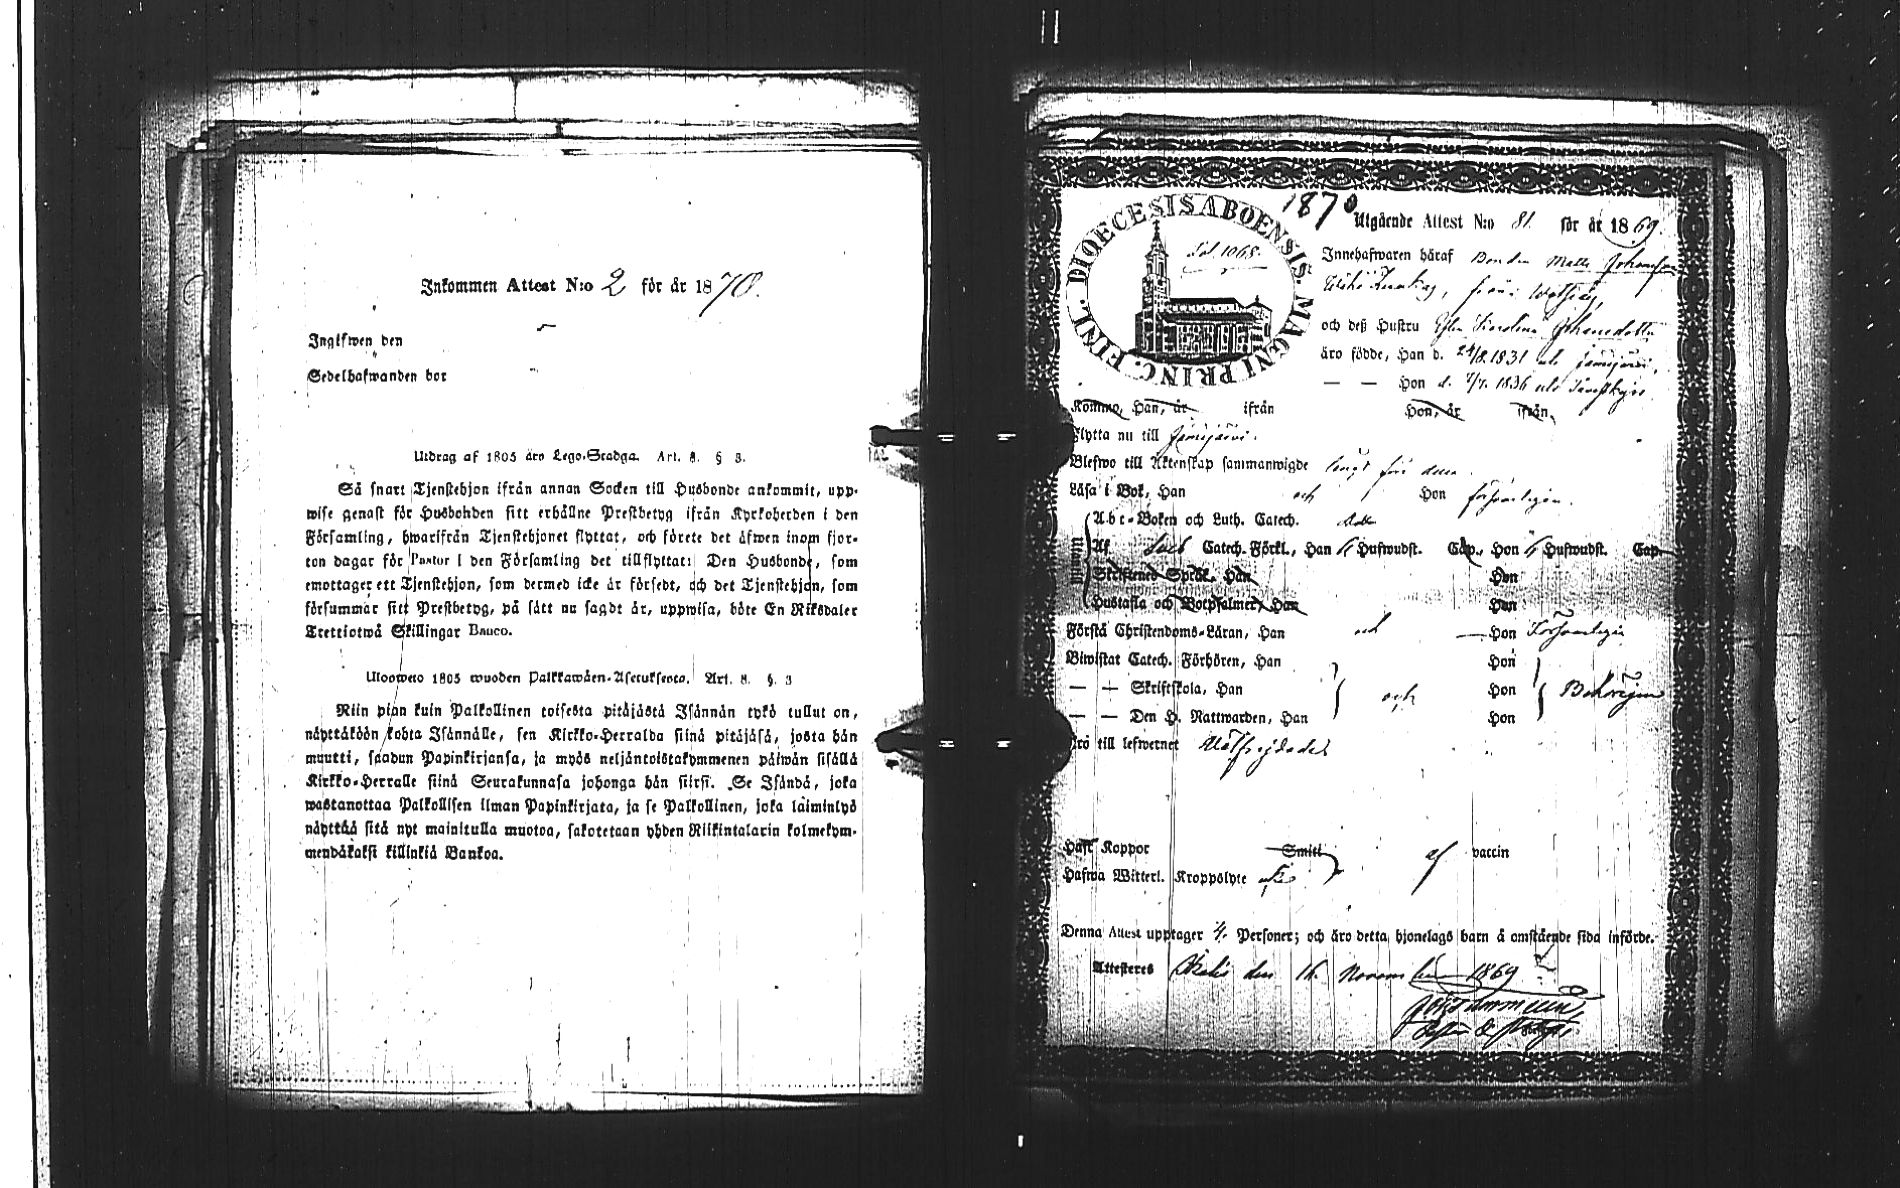 Inkommen Attest N:o 2 för år 1870.
Ingifwen den
Sedelhafwanden bor
Utdrag af 1805 års Lego-Stadga. Art. 8. § 3.
Så snart Tjenstehjon ifrån annan Socken till Husbonde ankommit, upp-
wise genast för Husbonden sitt erhållne Prestbetyg ifrån Kyrkoherden i den
Församling, hwarifrån Tjenstehjonet flyttat, och förete det äfwen inom fjor-
ton dagar för Pastor i den Församling det tillflyttat: Den Husbonde, som
emottager ett Tjenstehjon, som dermed icke är försedt, och det Tjenstehjon, som
försummar sitt Prestbetyg, på sätt nu sagdt är, uppwisa, böte En Riksdaler
Trettiotwå Skillingar Banco.
Ulosweto 1805 wuoden Palkkawäen-Asetuksesta. Art. 8. §. 3
Niin pian kuin Palkollinen toisesta pitäjästä Isännän tykö tullut on,
näyttäköön kohta Isännälle, sen Kirkko-Herralda siinä pitäjäsä, josta hän
muutti, saadun Papinkirjansa, ja myös neljäntoistakymmenen päiwän sisällä
Kirkko-Herralle siinä Seurakunnasa johonga hän siirsi. Se Isändä, joka
wastanottaa Palkollisen ilman Papinkirjata, ja se Palkollinen, joka laiminlyö
näyttää sitä nyt mainitulla muotoa, sakotetaan yhden Riikintalarin kolmekym-
mendäkaksi killinkiä Bankoa.
DIOECESIS ABOENSIS. MAGNI PRINC. FINL.
1870
Utgående Attest N:o 81. för år 1869.
Sid. 1068.
Innehafwaren häraf Bonden Matts Johansson
från
och deß Hustru Carolina Johansdotter
äro födde, Han d. 24/8 1831 uti Jämijärvi.
— — Hon d. 7/7. 1836 uti
Kommo, Han, år ifrån Hon, år ifrån
Flytta nu till Jämijärvi.
Blefwo till Äktenskap sammanwigde
Läsa i Bok, Han och Hon försvarligen.
Utantill
A-b-c-Boken och Luth. Catech.
Af Catech. Förkl., Han Hufwudst. Cap., Hon Hufwudst. Cap.
Skriftenes Språk. Han Hon
Hustafla och Botpsalmer, Han Hon
Förstå Christendoms-Läran, Han och Hon Försvarligen
Biwistat Catech. Förhören, Han Hon
— — Skriftskola, Han och Hon Behörigen
— — Den H. Nattwarden, Han Hon
Äro till lefwernet Välfrejdade
Haft Koppor Smitt af vaccin
Hafwa Witterl. Kroppslyte
Denna Attest upptager 4. Personer; och äro detta hjonelags barn å omstående sida införde.
Attesteras den 16. November 1869